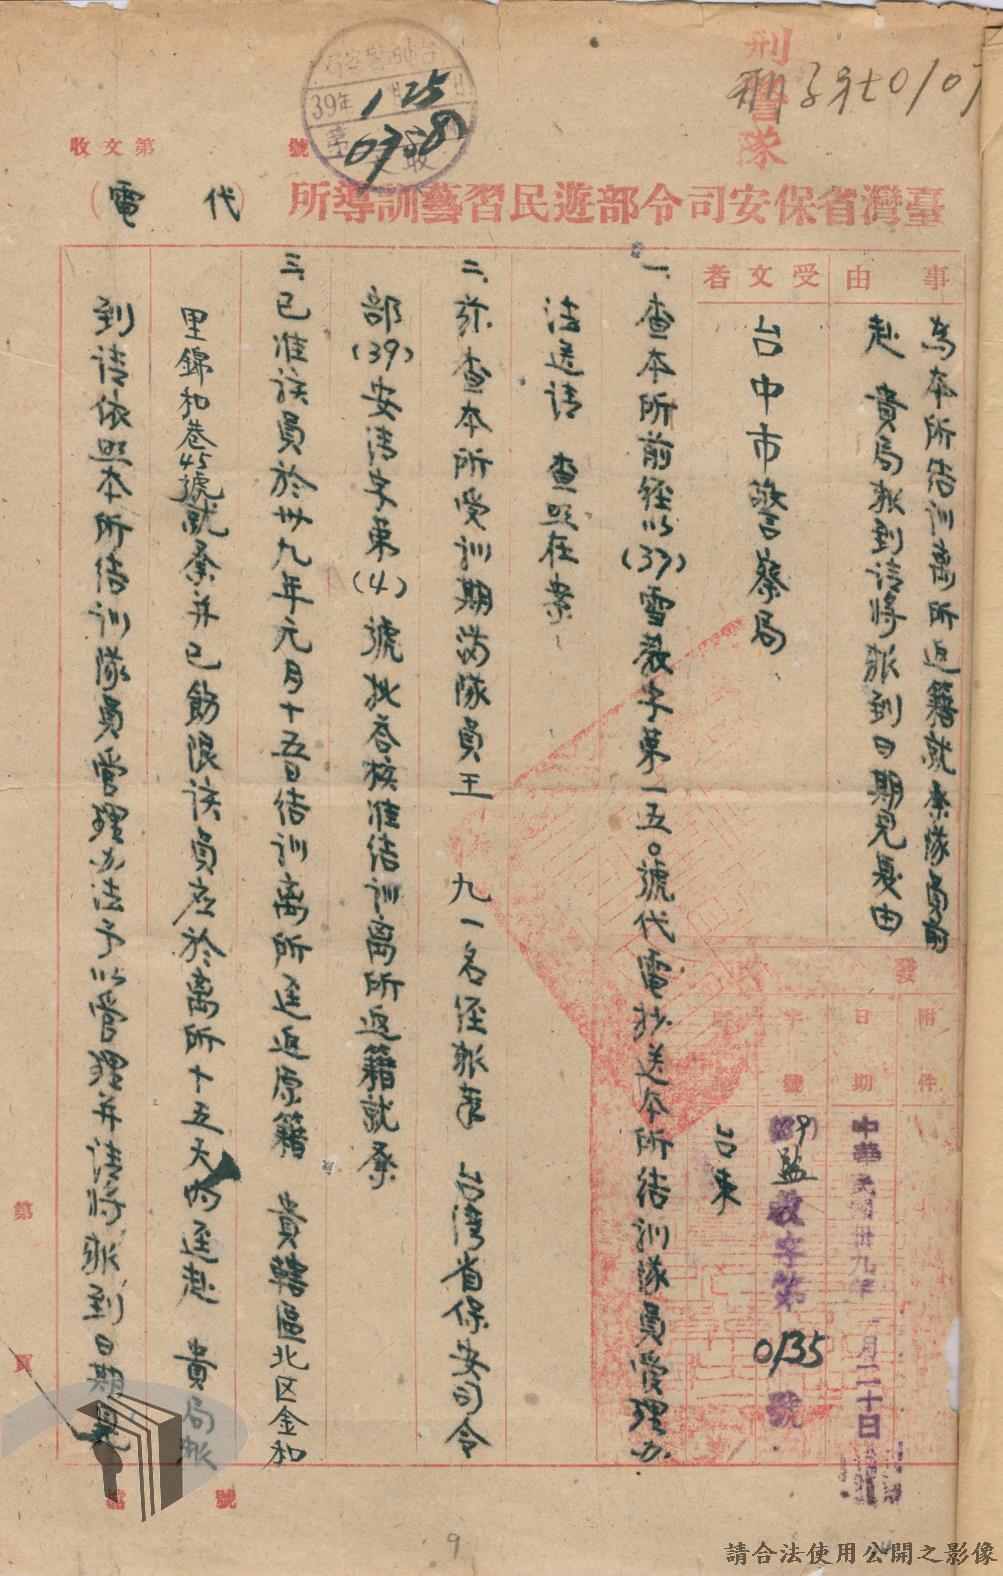 刑警隊
39年1月25日
0758
收文第 號
臺灣省保安司令部遊民習藝訓導所
(代電)
事由
為本所結訓离所返籍就業隊員前
赴 貴局報到請將報到日期見复由
受文者
台中市警察局
發
附件
日期
中華民國卅九年一月二十日
字號
(39)監教字第0135號
台東
一、查本所前經以(39)電教字第一五〇號代電抄送本所結訓隊員受理办
法送請 查照在案
二、茲查本所受訓期滿隊員王 九一名經報奉 台灣省保安司令
部(39)安清字第(4)號批答核准結訓离所返籍就業
三、已准該員於卅九年元月十五日結訓离所逕返原籍 貴轄區北区金和
里錦和巷45號就業并已飭限該員应於离所十五天內逕赴 貴局報
到請依照本所結訓隊員管理办法予以管理并請將報到日期見
第 頁
檔 號
9
請合法使用公開之影像